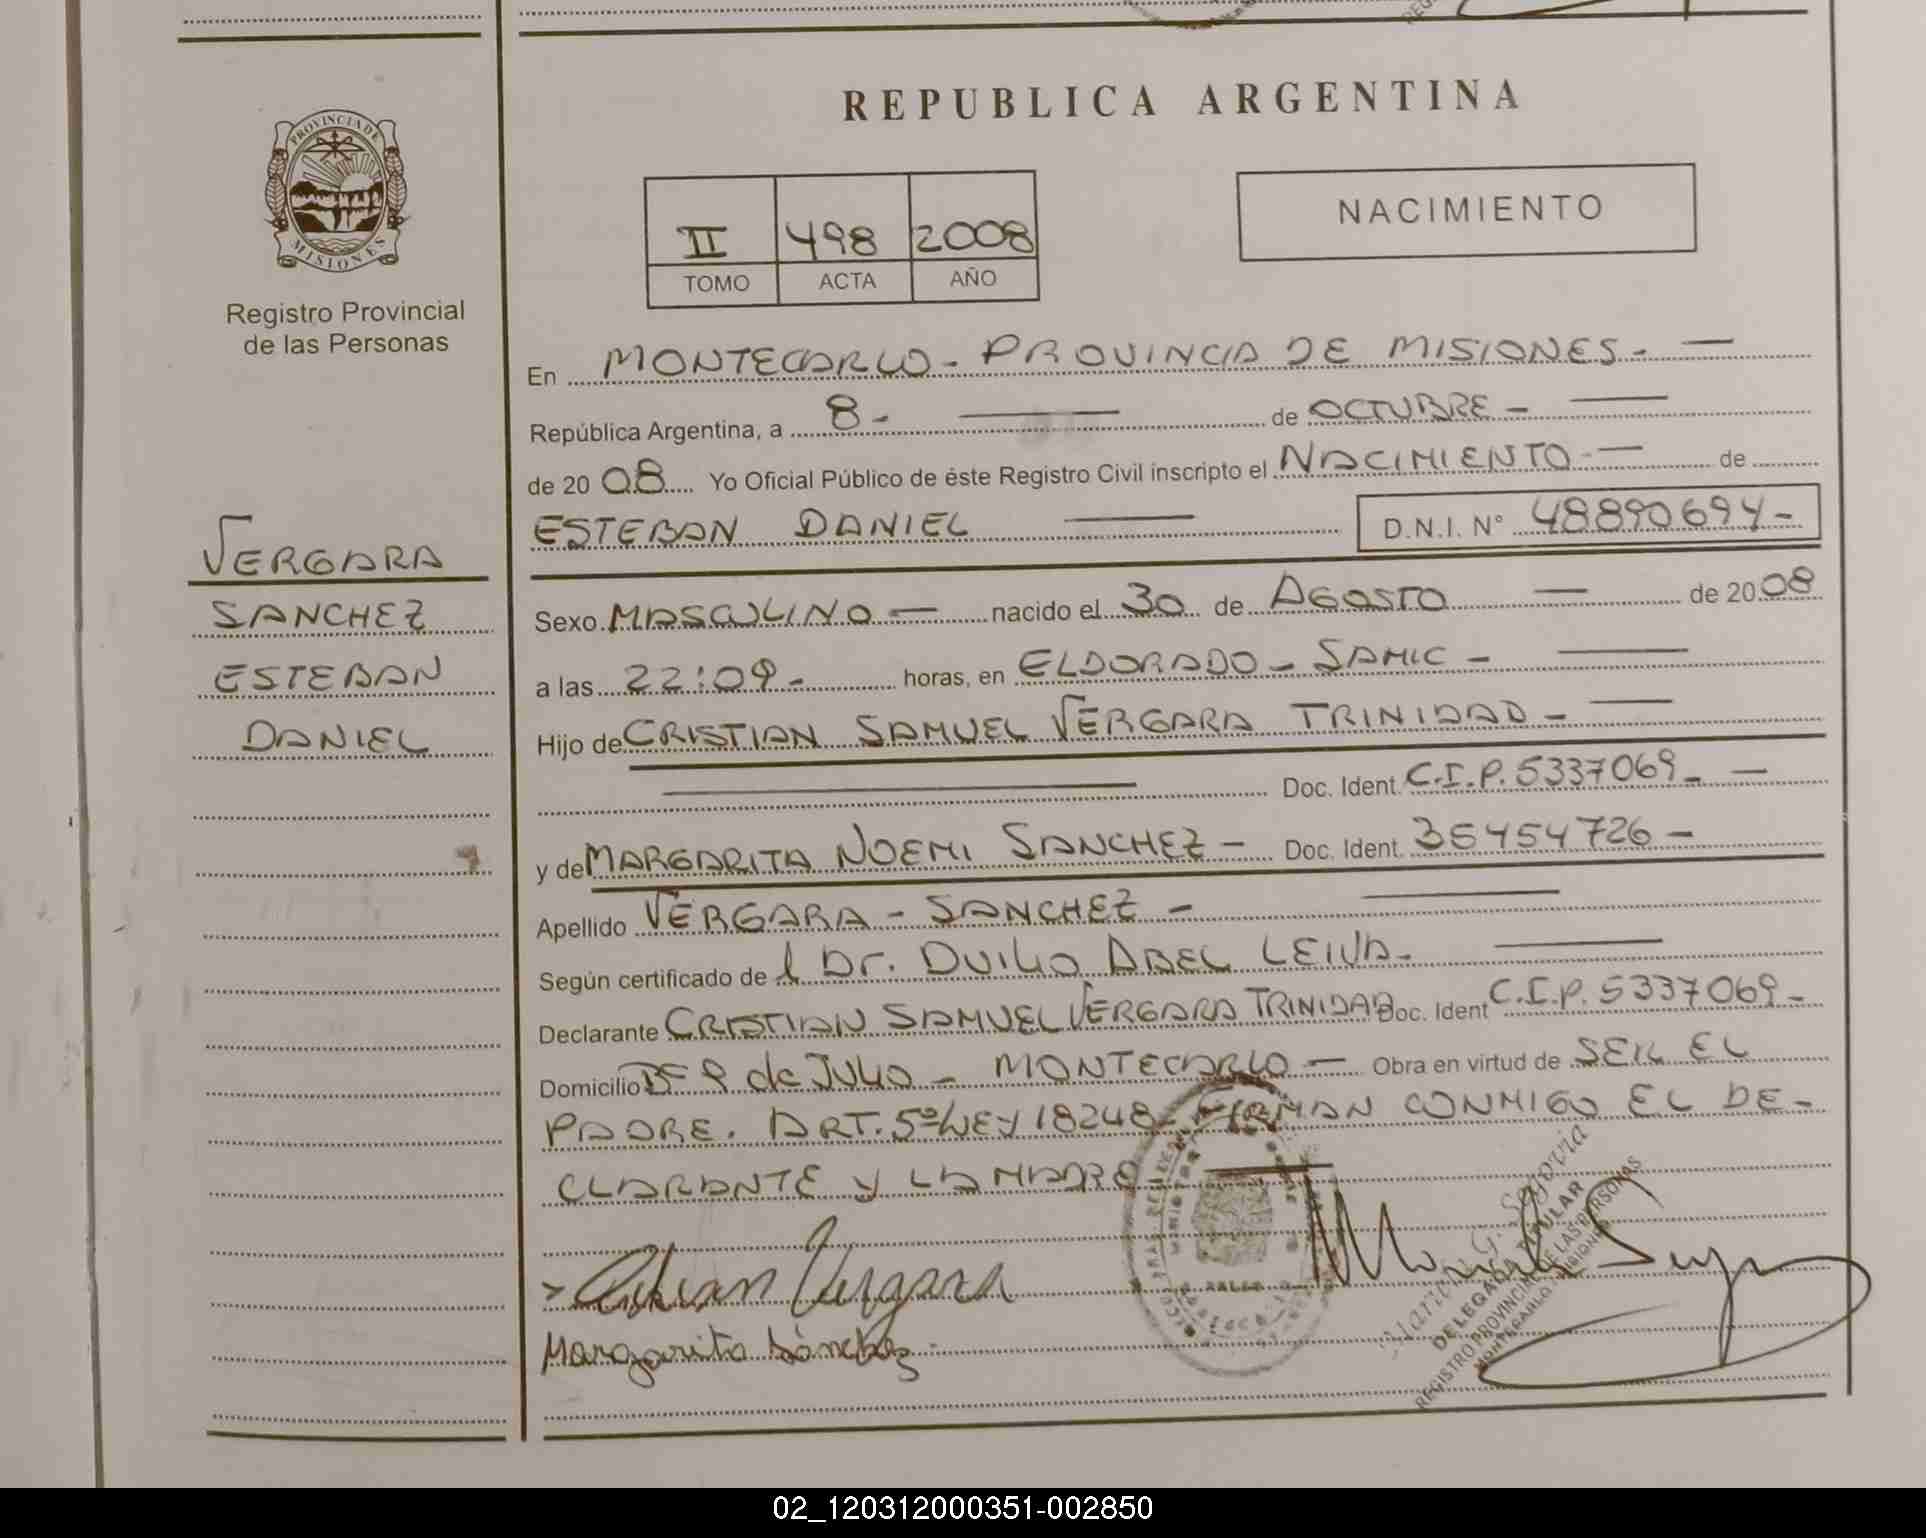 REPUBLICA ARGENTINA
PROVINCIA DE
MISIONES
Registro Provincial
de las Personas
NACIMIENTO
II 498 2008
TOMO ACTA AÑO
En MONTECARLO - PROVINCIA DE MISIONES. —
República Argentina, a 8 - — de OCTUBRE - —
de 20 08 Yo Oficial Público de éste Registro Civil inscripto el NACIMIENTO - — de
ESTEBAN DANIEL — D.N.I. N° 48890694 -
Sexo MASCULINO — nacido el 30 de AGOSTO — de 20 08
a las 22:09 - horas, en ELDORADO - SAMIC - —
Hijo de CRISTIAN SAMUEL VERGARA TRINIDAD - —
— Doc. Ident. C.I.P. 5337069 - —
y de MARGARITA NOEMI SANCHEZ - Doc. Ident. 35454726 -
Apellido VERGARA - SANCHEZ - —
Según certificado de l Dr. DUILIO ABEL LEIVA - —
Declarante CRISTIAN SAMUEL VERGARA TRINIDAD Doc. Ident C.I.P. 5337069 -
Domicilio Bº 9 de JULIO - MONTECARLO - Obra en virtud de SER EL
PADRE. ART. 5º LEY 18248 - FIRMAN CONMIGO EL DE-
CLARANTE Y LA MADRE —
VERGARA
SANCHEZ
ESTEBAN
DANIEL
Cristian Vergara
Margarita Sánchez
DELEGADA TITULAR
REGISTRO PROVINCIAL DE LAS PERSONAS
MONTECARLO MISIONES
02_120312000351-002850